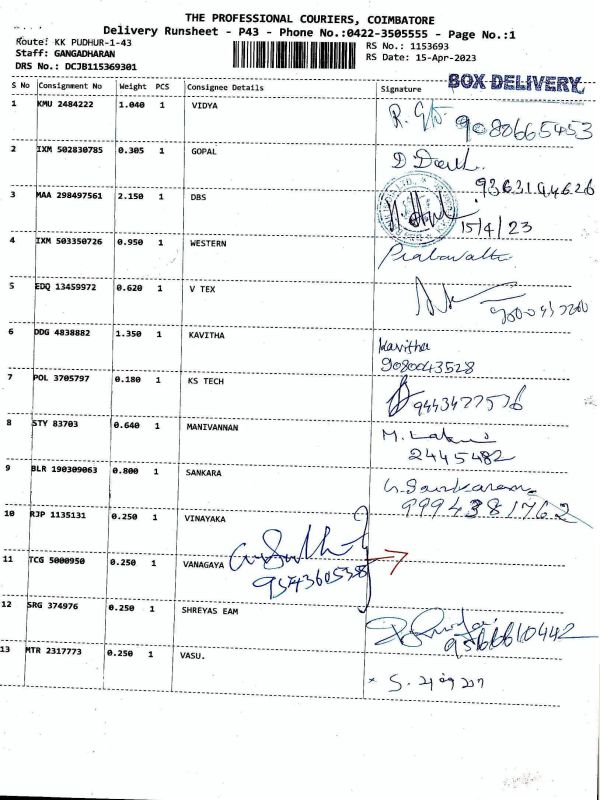 THE PROFESSIONAL COURIERS, COIMBATORE
Delivery Runsheet - P43 - Phone No.:0422-3505555 - Page No.:1
Route: KK PUDHUR-1-43
RS No.: 1153693
Staff: GANGADHARAN
RS Date: 15-Apr-2023
DRS No.: DCJB115369301
BOX DELIVERY
S No Consignment No Weight PCS Consignee Details Signature
1 KMU 2484222 1.040 1 VIDYA
9080665453
2 IXM 502830785 0.305 1 GOPAL
9363194626
3 MAA 298497561 2.150 1 DBS
15/4/23
4 IXM 503350726 0.950 1 WESTERN
5 EDQ 13459972 0.620 1 V TEX
6 DDG 4838882 1.350 1 KAVITHA
Kavitha
9080043528
7 POL 3705797 0.180 1 KS TECH
9443477576
8 STY 83703 0.640 1 MANIVANNAN
2445482
9 BLR 190309063 0.800 1 SANKARA
9994381762
10 RJP 1135131 0.250 1 VINAYAKA
11 TCG 5000950 0.250 1 VANAGAYA
9543360538
12 SRG 374976 0.250 1 SHREYAS EAM
9566610442
13 MTR 2317773 0.250 1 VASU.